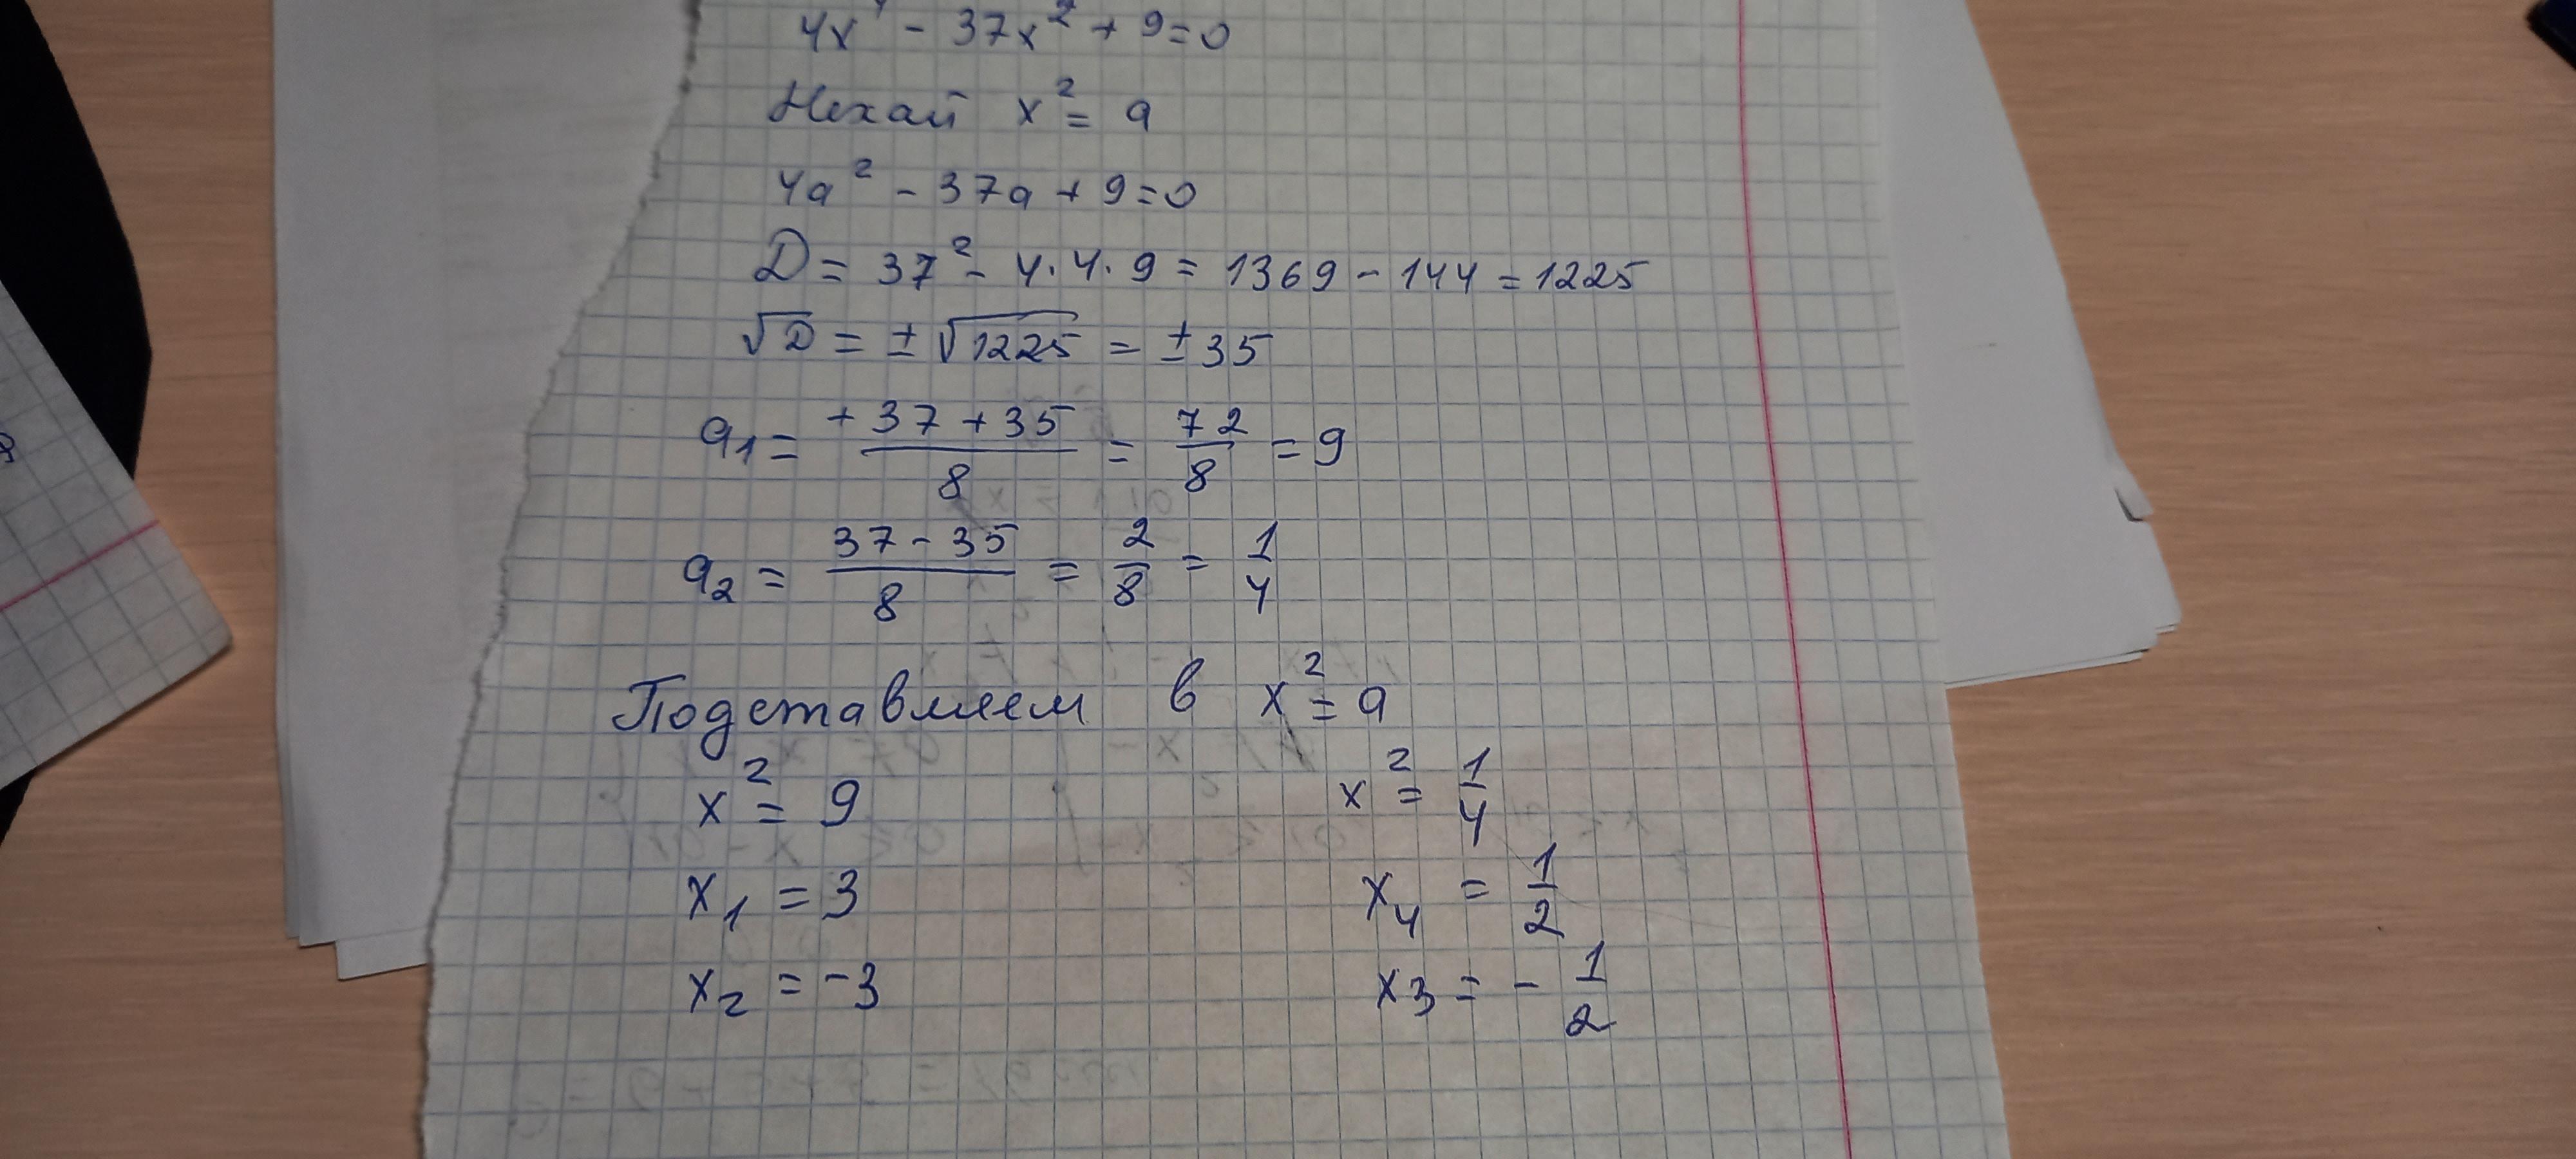 4x⁴ - 37x² + 9 = 0
Нехай x² = a
4a² - 37a + 9 = 0
D = 37² - 4·4·9 = 1369 - 144 = 1225
√D = ±√1225 = ±35
a₁ = +37+35/8 = 72/8 = 9
a₂ = 37-35/8 = 2/8 = 1/4
Подставляем в x² = a
x² = 9 x² = 1/4
x₁ = 3 x₄ = 1/2
x₂ = -3 x₃ = -1/2